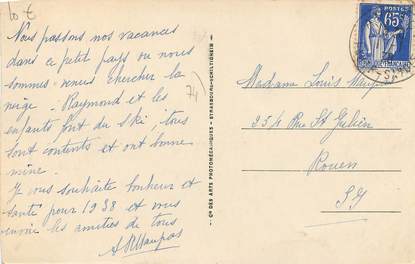 Nous passons nos vacances
dans ce petit pays ou nous
sommes venus chercher la
neige. Raymond et les
enfants font du ski, tous
sont contents et ont bonne
mine.
Je vous souhaite bonheur et
santé pour 1938 et vous
envoie les amitiés de tous
74
Cie DES ARTS PHOTOMÉCANIQUES - STRASBOURG-SCHILTIGHEIM
POSTES
65c
Madame Louis
234 Rue St Julien
Rouen
S I